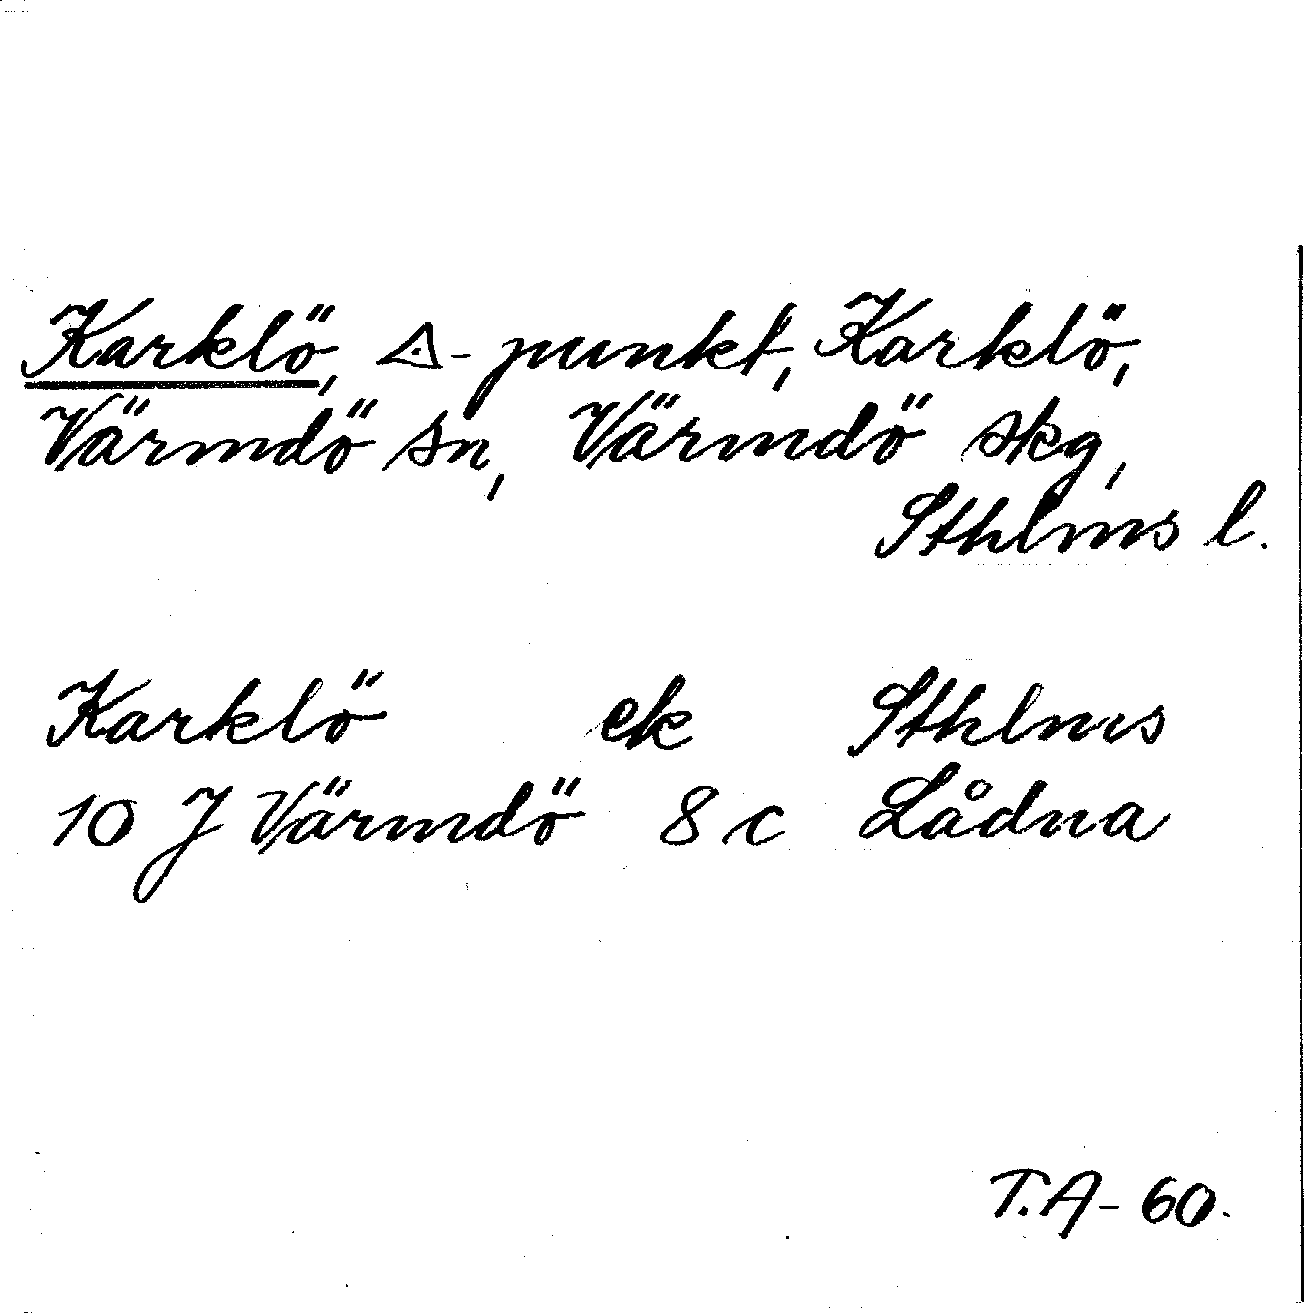 Karklö, △-punkt, Karklö,
Värmdö sn, Värmdö skg,
Sthlms l.
Karklö ek Sthlms
10 J Värmdö 8 c Lådna
T.A-60.